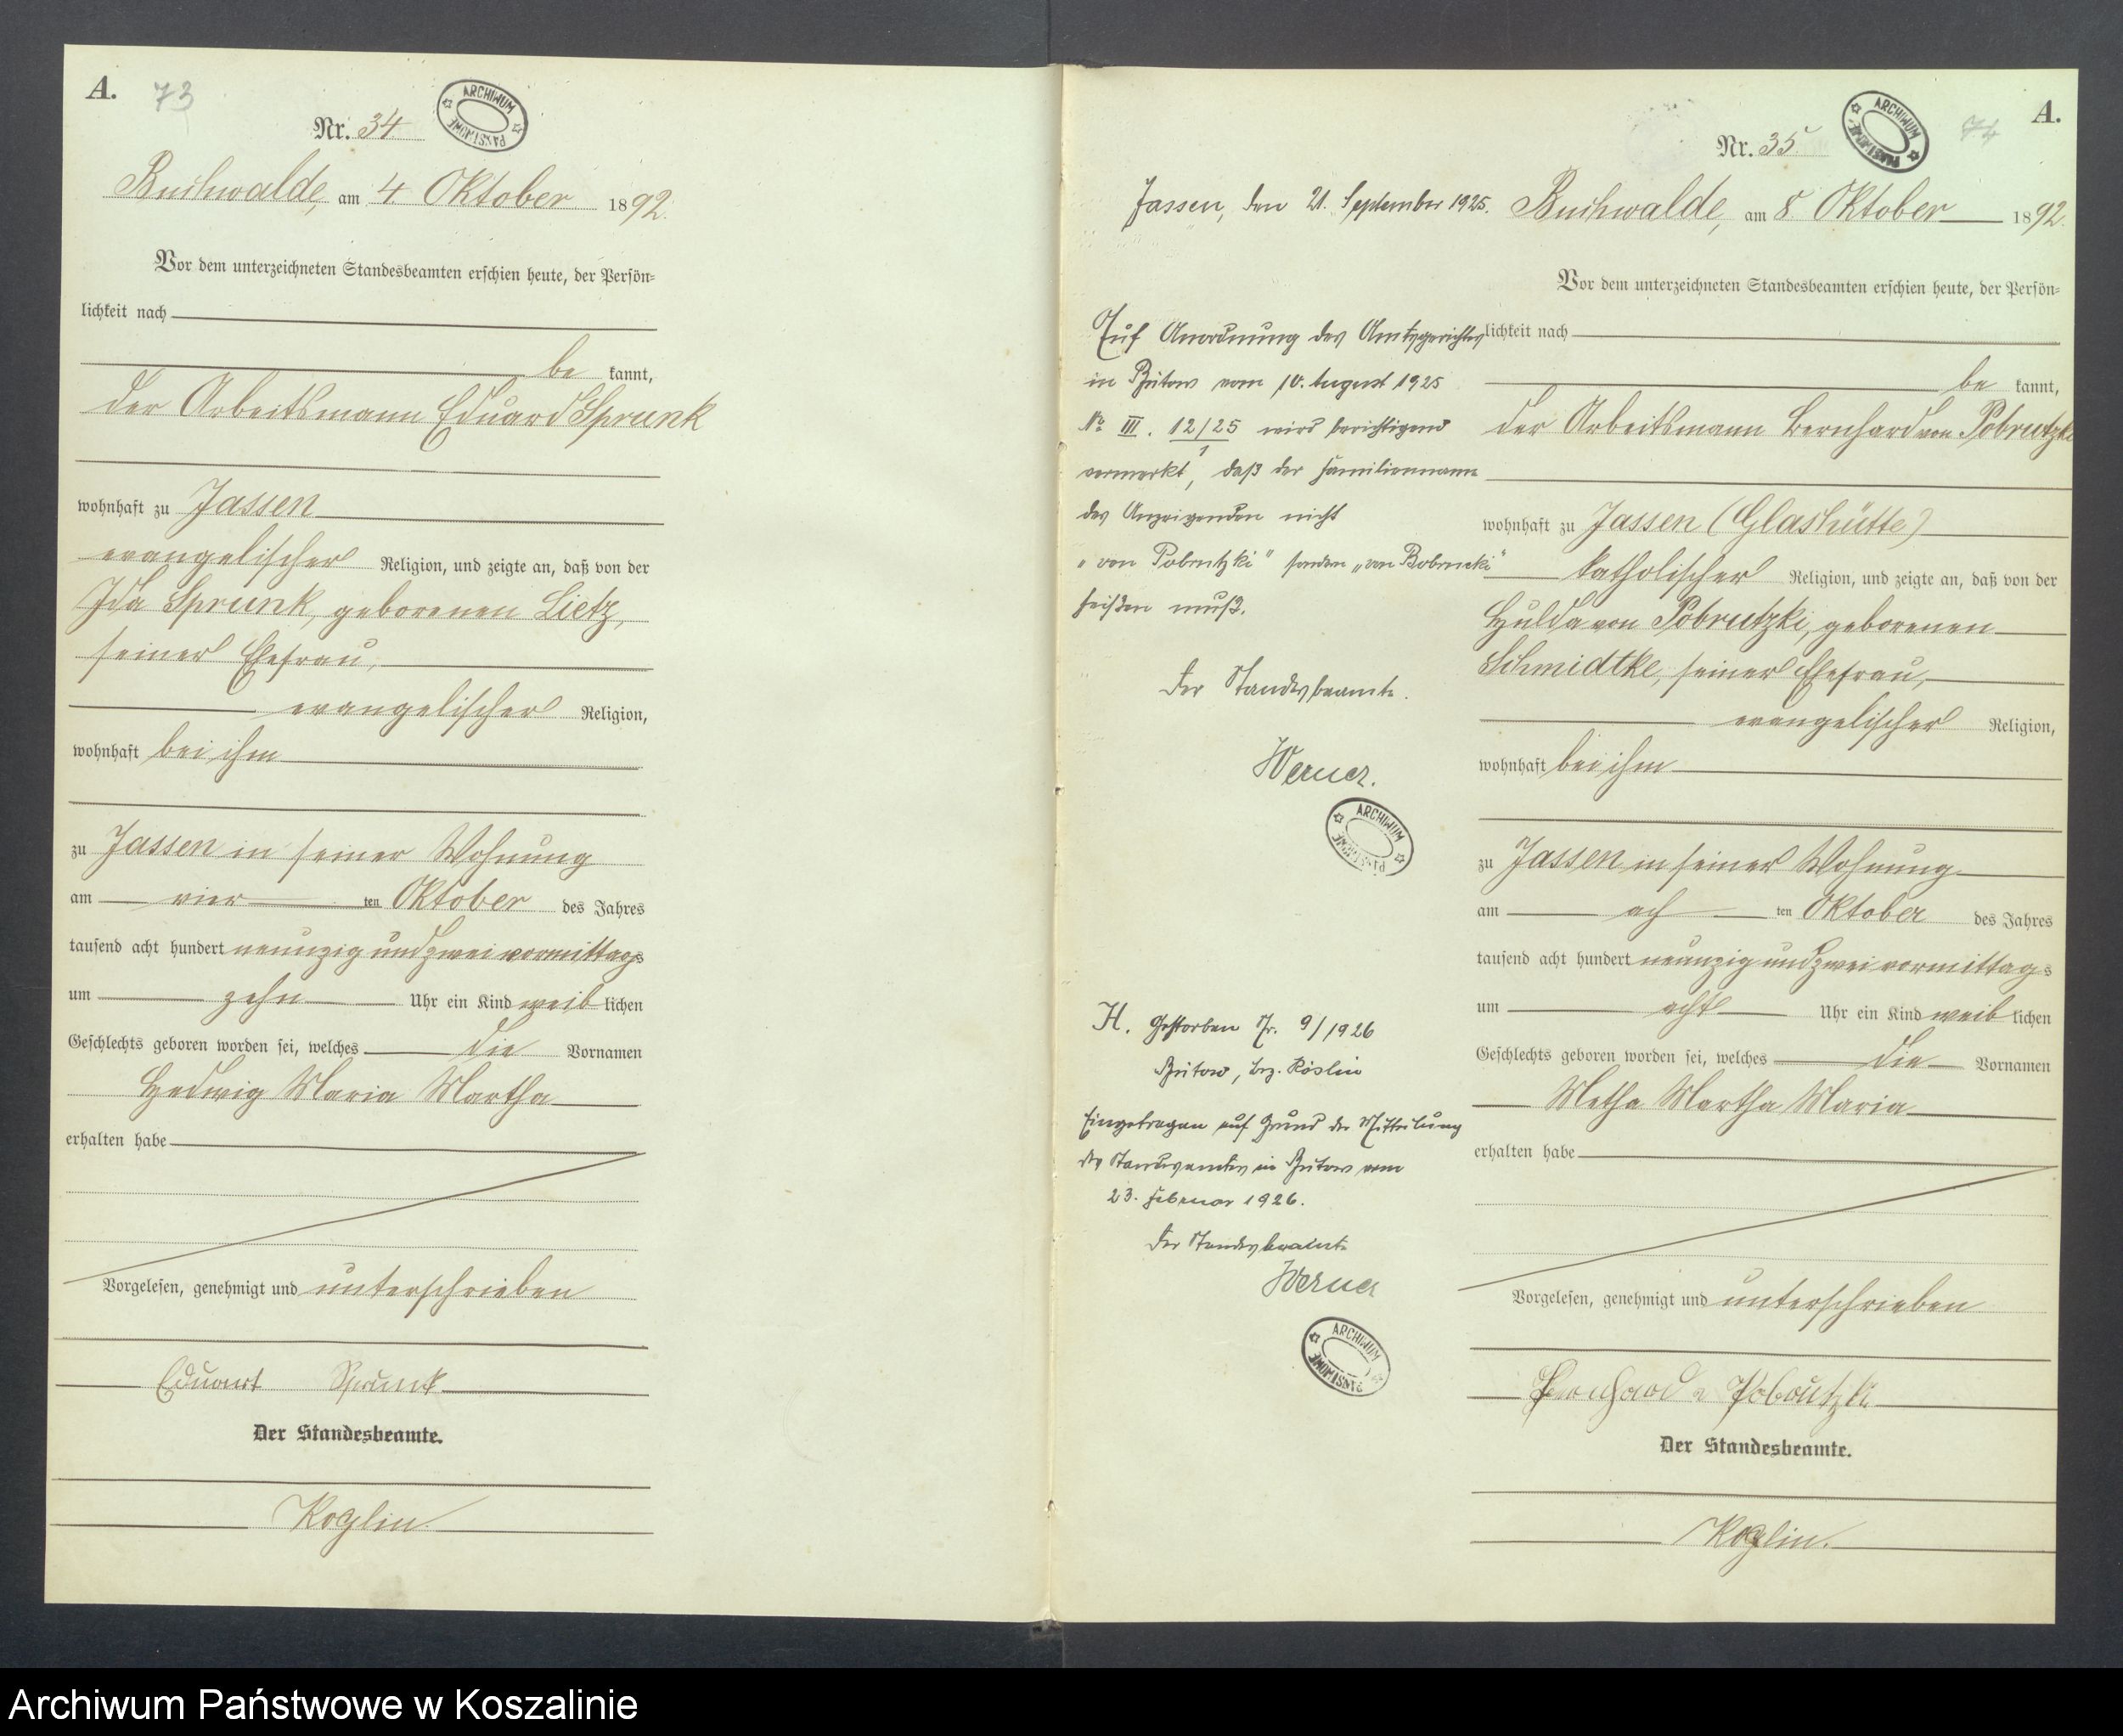 A.
73
Nr. 34
ARCHIWUM PAŃSTWOWE
Buchwalde, am 4. Oktober 1892.
Vor dem unterzeichneten Standesbeamten erschien heute, der Persön-
lichkeit nach
be kannt,
der Arbeitsmann Eduard Sprunk
wohnhaft zu Jassen
evangelischer Religion, und zeigte an, daß von der
Ida Sprunk, geborenen Lietz,
seiner Ehefrau,
evangelischer Religion,
wohnhaft bei ihm
zu Jassen in seiner Wohnung
am vier ten Oktober des Jahres
tausend acht hundert neunzig und zwei vormittags
um zehn Uhr ein Kind weib lichen
Geschlechts geboren worden sei, welches die Vornamen
Hedwig Maria Martha
erhalten habe
Vorgelesen, genehmigt und unterschrieben
Eduart Sprunk
Der Standesbeamte.
Koglin.
Jassen, den 21. September 1925.
Auf Anordnung des Amtsgerichtes
in Bütow vom 10. August 1925
No III. 12/25 wird berichtigend
vermerkt, daß der Familienname
des Anzeigenden nicht
"von Pobrutzki" sondern "von Bobrucki"
heißen muß.
Der Standesbeamte.
Werner.
ARCHIWUM PAŃSTWOWE
H. Gestorben Nr. 9/1926
Bütow, Bez. Köslin
Eingetragen auf Grund der Mitteilung
des Standesamtes in Bütow vom
23. Februar 1926.
Der Standesbeamte
Werner
ARCHIWUM PAŃSTWOWE
A.
74
Nr. 35
ARCHIWUM PAŃSTWOWE
Buchwalde, am 8. Oktober 1892.
Vor dem unterzeichneten Standesbeamten erschien heute, der Persön-
lichkeit nach
be kannt,
der Arbeitsmann Bernhard von Pobrutzki
wohnhaft zu Jassen (Glashütte)
katholischer Religion, und zeigte an, daß von der
Hulda von Pobrutzki, geborenen
Schmidtke, seiner Ehefrau,
evangelischer Religion,
wohnhaft bei ihm
zu Jassen in seiner Wohnung
am ach ten Oktober des Jahres
tausend acht hundert neunzig und zwei vormittags
um acht Uhr ein Kind weib lichen
Geschlechts geboren worden sei, welches die Vornamen
Metha Martha Maria
erhalten habe
Vorgelesen, genehmigt und unterschrieben
Bernhard v Pobrutzki
Der Standesbeamte.
Koglin.
Archiwum Państwowe w Koszalinie